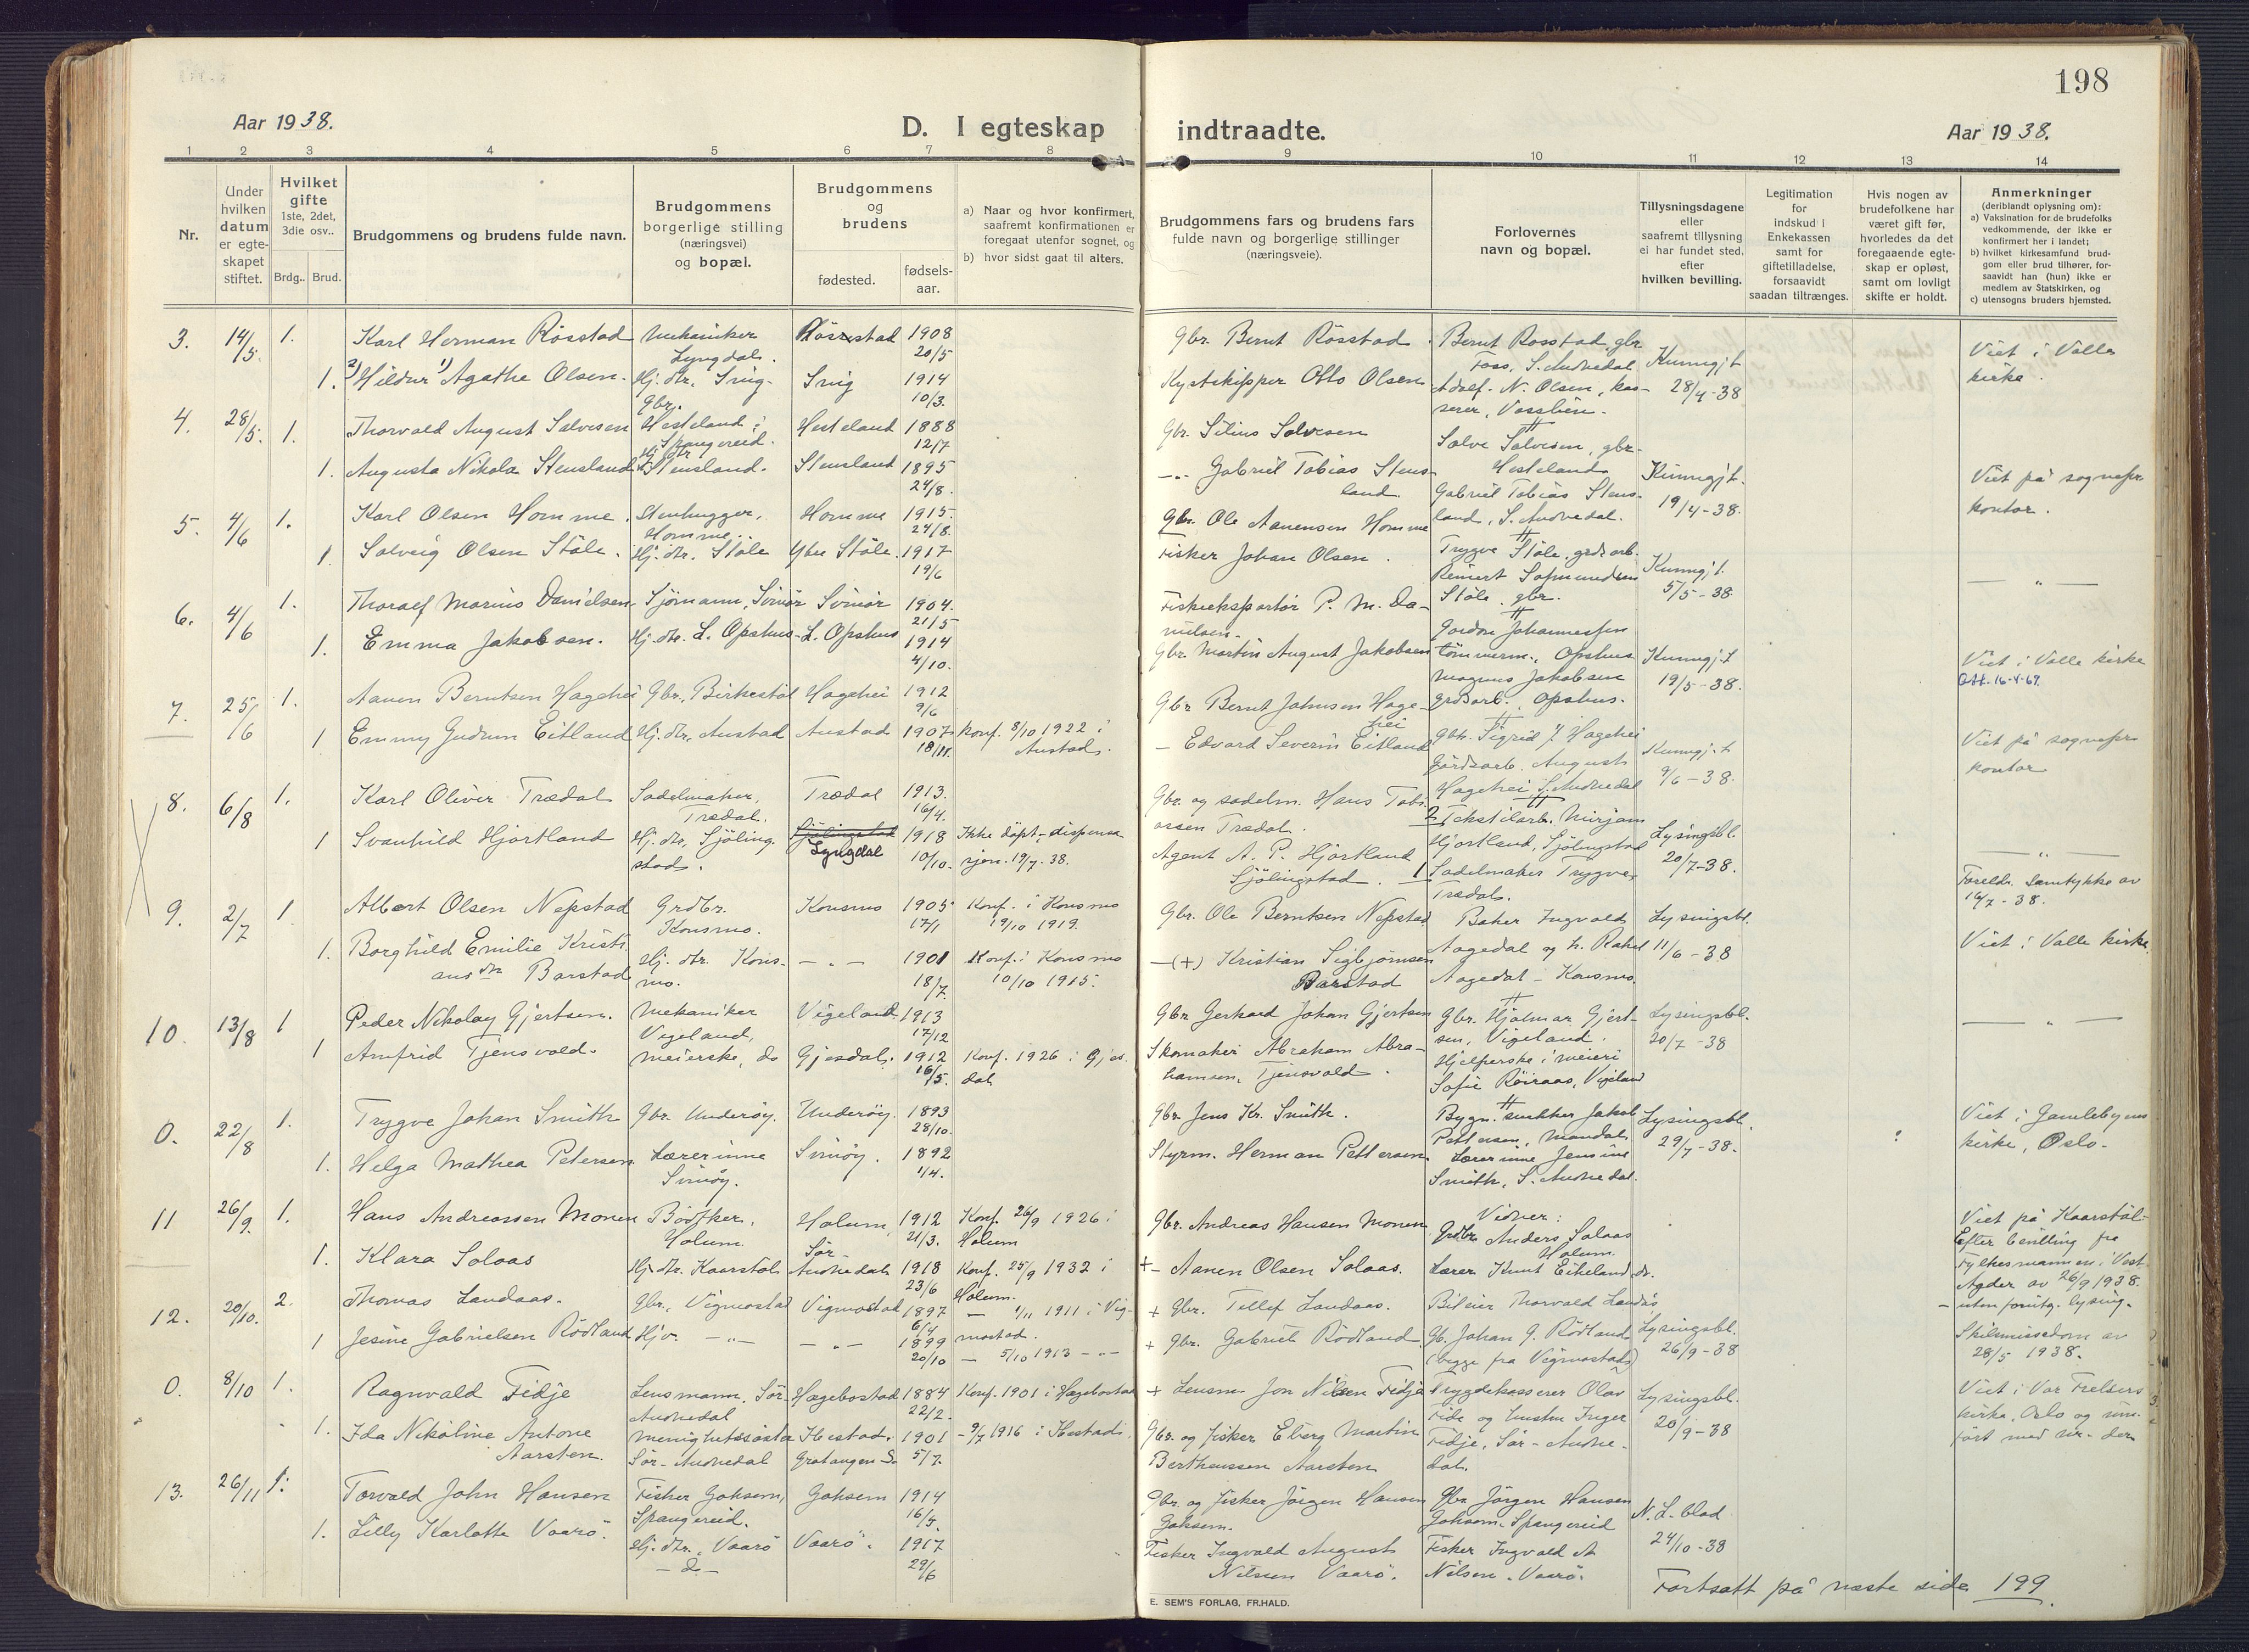 198
Aar 1938.
D. I egteskap indtraadte.
Aar 1938.
1 2 3 4 5 6 7 8 9 10 11 12 13 14
Nr.
Under hvilken datum er egte-skapet stiftet.
Hvilket gifte
1ste, 2det, 3die osv..
Brdg.. Brud.
Brudgommens og brudens fulde navn.
Brudgommens borgerlige stilling (næringsvei) og bopæl.
Brudgommens og brudens
fødested.
fødsels-aar.
a) Naar og hvor konfirmert, saafremt konfirmationen er foregaat utenfor sognet, og
b) hvor sidst gaat til alters.
Brudgommens fars og brudens fars fulde navn og borgerlige stillinger (næringsveie).
Forlovernes navn og bopæl.
Tillysningsdagene eller saafremt tillysning ei har fundet sted, efter hvilken bevilling.
Legitimation for indskud i Enkekassen samt for giftetilladelse, forsaavidt saadan tiltrænges.
Hvis nogen av brudefolkene har været gift før, hvorledes da det foregaaende egte-skap er opløst, samt om lovligt skifte er holdt.
Anmerkninger
(deriblandt oplysning om):
a) Vaksination for de brudefolks vedkommende, der ikke er konfirmert her i landet;
b) hvilket kirkesamfund brud-gom eller brud tilhører, for-saavidt han (hun) ikke er medlem av Statskirken, og
c) utensogns bruders hjemsted.
3. 14/5. 1. Karl Herman Rösstad Mekaniker Lyngdal. Rösstad 1908 20/5 Gbr. Bernt Rösstad Bernt Rosstad, gbr Foss, S. Audnedal Kunngjt 28/4-38 Viet i Valle kirke.
1. 2) Hildur 1) Agathe Olsen. Hj. dtr. Snig- Snig 1914 10/3. Kystskipper Otto Olsen Adolf. N. Olsen, kas-serer, Vassbön.
4. 28/5. 1. Thorvald August Salvesen Gbr. Hesteland i Spangereid. Hesteland 1888 12/7 Gbr. Silius Salvesen Salve Salvesen, gbr. Hesteland Kunngjt. 19/4-38. Viet på sognepr kontor.
1. Augusta Nikola Stensland Hj. dtr Stensland. Stensland 1895 24/8. -"- Gabriel Tobias Stens-land. Gabriel Tobias Stens-land, S. Audnedal.
5. 4/6 1. Karl Olsen Homme. Stenhugger, Homme. Homme 1915 24/8. Gbr. Ole Aanensen Homme Trygve Støle, grdsarb. Kunngjt. 5/5-38. - " -
1. Solveig Olsen Ståle. Hj. dtr. Ståle Ytre Ståle. 1917 19/6 Fisker Johan Olsen. Reinert Salmundsen Ståle, gbr.
6. 4/6 1. Thoralf Marius Danielsen, Sjömann, Svinör Svinör 1904. 21/5 Fiskeeksportör P. M. Da-nielsen. Gordon Johannessen tömmerm., Opshus Kunngjt 19/5-38. Viet i Valle kirke
1. Emma Jakobsen. Hj. dtr. L. Opshus L. Opshus 1914 4/10. Gbr. Martin August Jakobsen Magnus Jakobsen grdsarb. Opshus.
7. 25/6 1. Aanen Berntsen Hagehei Gbr. Birkestøl Hagehei 1912 9/6 Gbr Bernt Johnsen Hage-hei Gbr. Sigrid Hagehei Kunngjt 9/6-38. Viet på sognepr kontor
1 Emmy Gudrun Eitland Hj. dtr, Austad Austad 1907 18/11. Konf. 8/10 1922 i Austad. - Edvard Severin Eitland Gårdsarb. August Hagehei S. Audnedal
8. 6/8 1. Karl Oliver Trædal Sadelmaker, Trædal. Trædal 1913. 16/4. Gbr. og sadelm. Hans Tobi-assen Trædal. 2 Tekstilarb. Mirjam Hjortland, Sjölingstad Lysingsbl. 20/7-38. - " -
1 Svanhild Hjortland Hj. dtr, Sjöling-stad. Lyngdal 1918 10/10. Ikke döpt, dispensa-sjon. 19/7. 38. Agent A. P. Hjortland Sjölingstad. 1 Sadelmaker Trygve Trædal. Foreldr. samtykke av 16/7-38.
9. 2/7 1 Albert Olsen Nepstad Grdbr. Konsmo. Konsmo 1905 17/1 Konf. i Konsmo 19/10 1919. Gbr. Ole Berntsen Nepstad Baker Ingvald Aagedal og h. Rakel Aagedal - Konsmo. Lysingsbl. 11/6-38 Viet i Valle kirke
1. Borghild Emilie Kristi-ansdtr Barstad Hj. dtr. Kons-mo. - " - 1901 18/7. Konf. i Konsmo 10/10 1915. -(+) Kristian Sigbjörnsen Barstad
10. 13/8 1 Peder Nikolay Gjertsen. Mekaniker Vigeland, Vigeland 1913 17/12 Gbr Gerhard Johan Gjertsen Gbr. Hjalmar Gjert-sen, Vigeland. Lysingsbl. 20/7-38 - " -
1 Arnfrid Tjensvold. Meierske, do Gjesdal. 1912 16/5. Konf. 1926 i Gjes-dal Skomaker Abraham Abra-hamsen, Tjensvold. Hjelperske i meieri Sofie Röiraas, Vigeland
0. 22/8 1. Trygve Johan Smith Gbr. Underöy. Underöy. 1893 28/10. Gbr. Jens Kr. Smith. Bygn. snekker Jakob Pettersen, Mandal. Lysingsbl. 29/7-38. Viet i Gamlebyens kirke, Oslo.
1. Helga Mathea Petersen Lærerinne Svinöy. Svinöy. 1892 1/4. Styrm. Herman Pettersen. Lærerinne Jensine Smith, S. Audnedal.
11 26/9. 1. Hans Andreassen Monen Bödtker, Holum Holum 1912 21/3. Konf. 26/9 1926 i Holum Gbr. Andreas Hansen Monen Vidner: Grdbr Anders Solaas Holum Viet på Kaarstöl-Efter bevilling fra Fylkesmannen i Vest-Agder av 26/9 1938. - uten forutg. lysing.
1. Klara Solaas Hj. dtr. Kaarstöl Sör-Audnedal 1918 23/6 Konf. 25/9 1932 i Holum. +- Aanen Olsen Solaas. Lærer Knut Eikeland do.
12. 20/10. 2. Thomas Landaas. Gbr, Vigmostad Vigmostad 1897 6/4 - 1/11 1911 i Vig-mostad. + Gbr. Tellef Landaas. Bileier Thorvald Landås Lysingsbl. 26/9-38 Skilsmissedom av 28/5 1938.
1 Jesine Gabrielsen Rödland Hjv. -"- - " - 1899 20/10 - 5/10 1913 -"- + Gbr. Gabriel Rödland. Gb. Johan G. Rödland (begge fra Vigmostad)
0. 8/10 1. Ragnvald Fidje Lensmann. Sör-Audnedal Hægebostad 1884 22/2. Konf. 1901 i Hægebostad + Lensm Jon Nilsen Fidje Trygdekasserer Olav Eide og hustru Inger Fidje, Sør-Audne-dal. Lysingsbl. 20/9-38 Viet i Vor Frelsers kirke, Oslo
1. Ida Nikoline Antone Aarsten. Menighetssöster Sör-Audnedal Ibestad. Gratangen S. 1901 5/7. - 9/7 1916 i Ibestad. Gbr. og fisker Eberg Martin Bertheussen Aarsten
13. 26/11 1. Torvald John Hansen Fisker Gahsem, Spangereid. Gahsem 1914 16/5. Gbr. og fisker Jörgen Hansen Gahsem. Gbr Jörgen Hansen Gahsem, Spangereid N. L. blad 24/10-38
1. Lilly Karlotte Vaarö. Hj. dtr, Vaarö Vaarö. 1917 29/6 Fisker Ingvald August Nilsen Vaarö. Fisker Ingvald A Nilsen. Vaarö.
Fortsatt på næste side 199.
E. SEM'S FORLAG, FR.HALD.